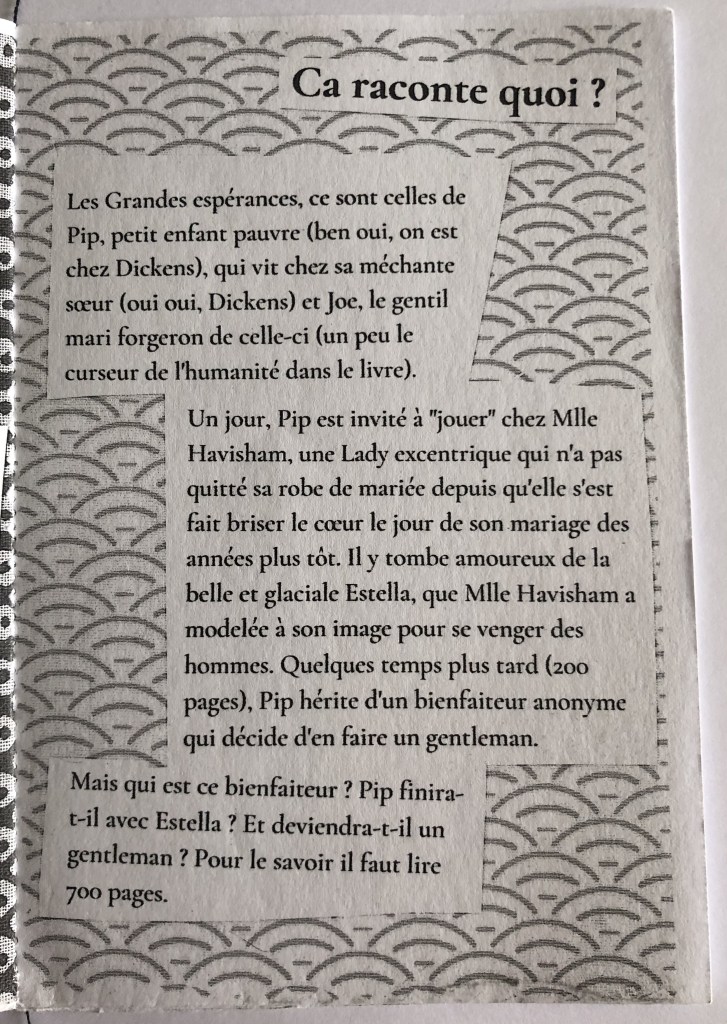 Ca raconte quoi ?
Les Grandes espérances, ce sont celles de
Pip, petit enfant pauvre (ben oui, on est
chez Dickens), qui vit chez sa méchante
sœur (oui oui, Dickens) et Joe, le gentil
mari forgeron de celle-ci (un peu le
curseur de l'humanité dans le livre).
Un jour, Pip est invité à "jouer" chez Mlle
Havisham, une Lady excentrique qui n'a pas
quitté sa robe de mariée depuis qu'elle s'est
fait briser le cœur le jour de son mariage des
années plus tôt. Il y tombe amoureux de la
belle et glaciale Estella, que Mlle Havisham a
modelée à son image pour se venger des
hommes. Quelques temps plus tard (200
pages), Pip hérite d'un bienfaiteur anonyme
qui décide d'en faire un gentleman.
Mais qui est ce bienfaiteur ? Pip finira-
t-il avec Estella ? Et deviendra-t-il un
gentleman ? Pour le savoir il faut lire
700 pages.